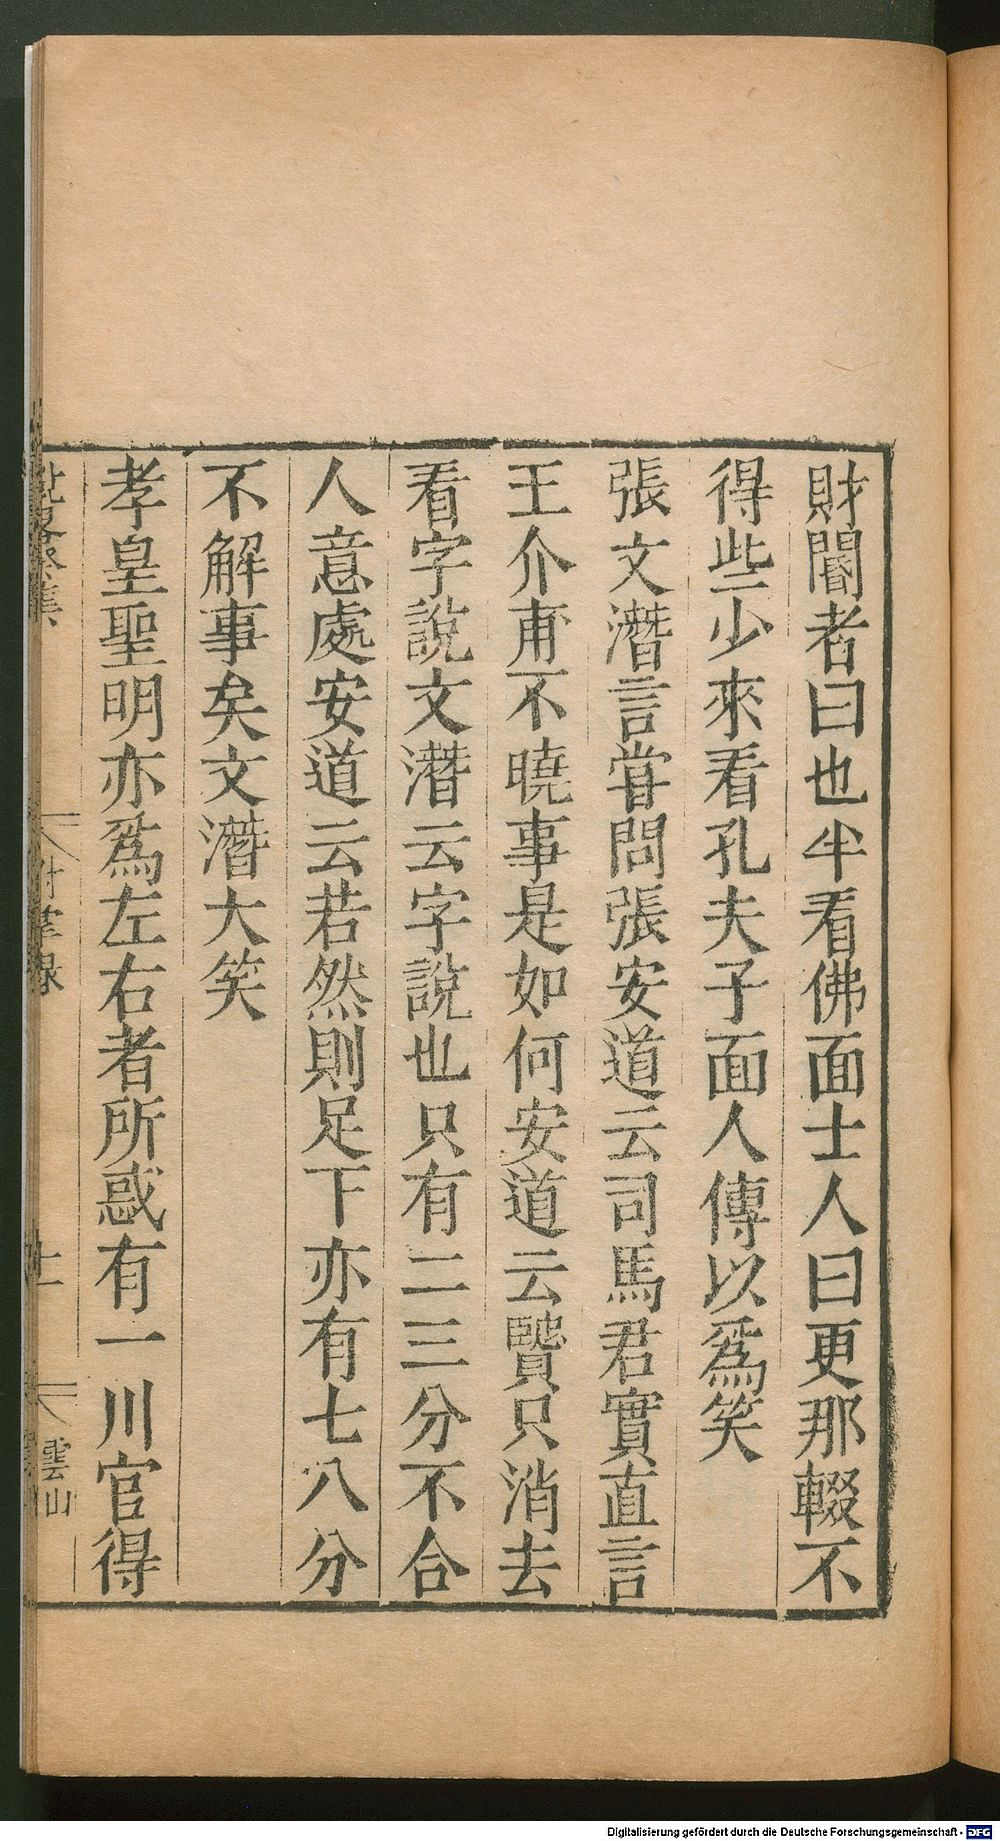 財閽者曰也半看佛面士人曰更那輟不
得些少來看孔夫子面人傳以爲笑
張文潛言甞問張安道云司馬君實直言
王介甫不曉事是如何安道云賢只消去
看字說文潛云字說也只有二三分不合
人意處安道云若然則足下亦有七八分
不解事矣文潛大笑
孝皇聖明亦爲左右者所惑有一川官得
雲山
Digitalisierung gefördert durch die Deutsche Forschungsgemeinschaft - DFG